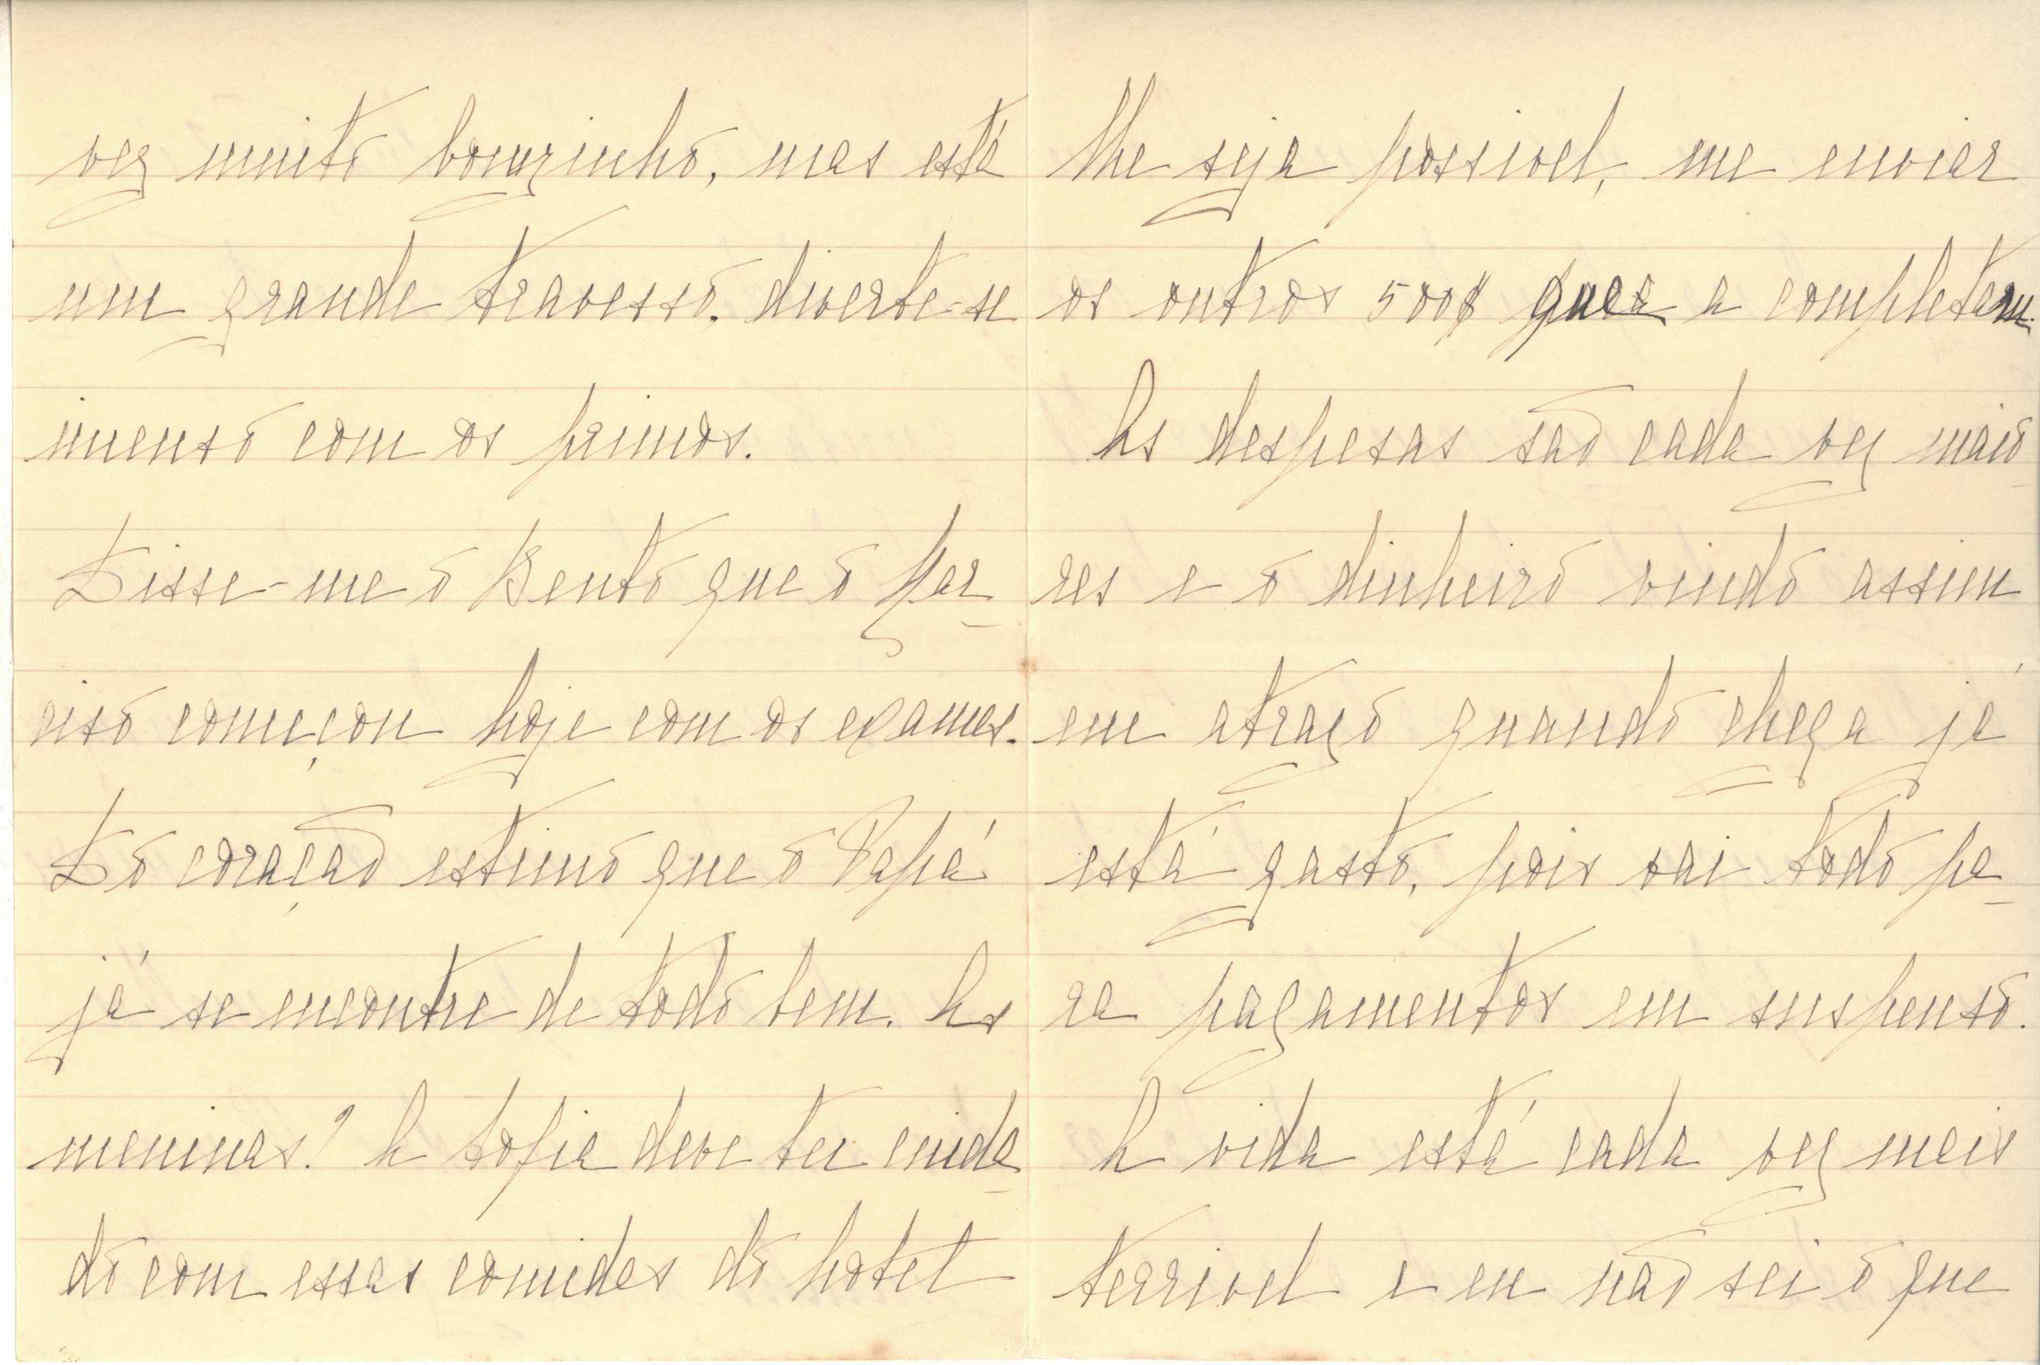 vez muito bomzinho, mas está
um grande travesso. diverte-se
imenso com os primos.
Disse-me o Bento que o Nar-
ciso começou hoje com os exames.
Do coração estimo que o Papá
já se encontre de todo bem. As
meninas? A Sofia deve ter cuida-
do com essas comidas do hotel
lhe seja possivel, me enviar
os outros 500$ para a completar.
As despesas são cada vez maio-
res e o dinheiro vindo assim
em atrazo quando chega já
está gasto, pois sai todo pa-
ra pagamentos em suspenso.
A vida está cada vez mais
terrivel e eu não sei o que